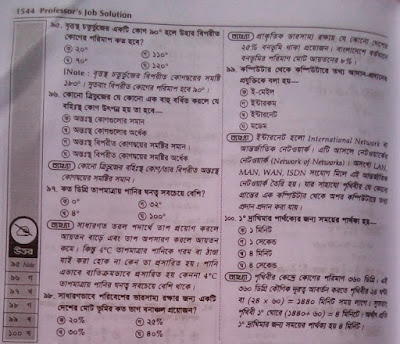 1544 Professor's Job Solution
৯৫. বৃত্তস্থ চতুর্ভুজের একটি কোণ ৯০° হলে উহার বিপরীত
কোণের পরিমাপ কত হবে?
২০°
১১০°
৭০°
১২০°
[Note : বৃত্তস্থ চতুর্ভুজের বিপরীত কোণদ্বয়ের সমষ্টি
১৮০°। সুতরাং বিপরীত কোণের পরিমাপ হবে ৯০°।
৯৬. কোনো ত্রিভুজের যে কোনো এক বাহু বর্ধিত করলে যে
বহিঃস্থ কোণ উৎপন্ন হয় তা হবে–
অন্তঃস্থ কোণগুলোর সমান
অন্তঃস্থ কোণগুলোর অর্ধেক
অন্তঃস্থ বিপরীত কোণদ্বয়ের সমষ্টির সমান
অন্তঃস্থ বিপরীত কোণদ্বয়ের সমষ্টির অর্ধেক
ব্যাখ্যা কোনো ত্রিভুজের বহিঃস্থ কোণ তার বিপরীত অন্তঃস্থ
কোণদ্বয়ের সমষ্টির সমান।
৯৭. কত ডিগ্রি তাপমাত্রায় পানির ঘনত্ব সবচেয়ে বেশি?
০°
৩২°
৪°
১০০°
ব্যাখ্যা সাধারণত তরল পদার্থে তাপ প্রয়োগ করলে
আয়তন বাড়ে এবং তাপ অপসারণ করলে আয়তন
কমে। কিন্তু 4°C তাপমাত্রার পানিকে গরম বা ঠাণ্ডা
যাই করা হোক না কেন তা প্রসারিত হয়। পানি
এভাবে ব্যতিক্রমভাবে প্রসারিত হয় কেননা 4°C
তাপমাত্রায় পানির ঘনত্ব সবচেয়ে বেশি থাকে।
৯৮. সাধারণভাবে পরিবেশের ভারসাম্য রক্ষার জন্য একটি
দেশের মোট ভূমির কত ভাগ বনাঞ্চল প্রয়োজন?
২০%
২৫%
৩০%
৪০%
উত্তর
৯৫
৯৬ গ
৯৭ গ
৯৮ খ
৯৯ গ
১০০ ঘ
ব্যাখ্যা প্রাকৃতিক ভারসাম্য রক্ষায় যে কোনো দেশের
২৫% বনভূমি থাকা প্রয়োজন। বাংলাদেশে বর্তমানে
বনভূমির পরিমাণ মোট আয়তনের
৯৯. কম্পিউটার থেকে কম্পিউটারে তথ্য আদান-প্রদানের
প্রযুক্তিকে বলা হয়–
ই-মেইল
ইন্টারকম
ইন্টারনেট
মডেম
ব্যাখ্যা ইন্টারনেট হলো International Network বা
আন্তর্জাতিক নেটওয়ার্ক। এটি আসলে নেটওয়ার্কের
নেটওয়ার্ক (Network of Networks)। অসংখ্য LAN,
MAN, WAN, ISDN সংযোগ মিলে এই আন্তর্জাতিক
নেটওয়ার্ক তৈরি হয়। যার সাহায্যে পৃথিবীর যে কোনো
প্রান্তের এক কম্পিউটার থেকে অপর কম্পিউটারে তথ্য
প্রদান করা যায়।
১০০. ১° দ্রাঘিমার পার্থক্যের জন্য সময়ের পার্থক্য হয়–
১ মিনিট
১ সেকেন্ড
৪ সেকেন্ড
৪ মিনিট
ব্যাখ্যা পৃথিবীর কেন্দ্রে কোণের পরিমাণ ৩৬০ ডিগ্রি। এই
৩৬০ ডিগ্রি কৌণিক দূরত্ব আবর্তন করতে পৃথিবীর ২৪ ঘণ্টা
বা (২৪ × ৬০) = ১৪৪০ মিনিট সময় লাগে। সুতরাং
পৃথিবী ১° ঘোরে (১৪৪০÷ ৩৬০) = ৪ মিনিটে। অর্থাৎ প্রতি
১° দ্রাঘিমার জন্য সময়ের পার্থক্য হয় ৪ মিনিট।